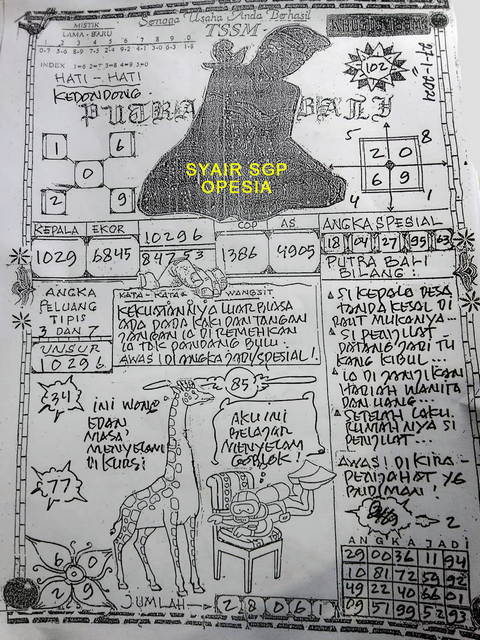 Semoga Usaha Anda Berhasil
MISTIK
TSSM
LAMA - BARU
1 2 3 4 5 6 7 8 9
INDEX 1=6 2=7 3=8 4=9 5=0
HATI - HATI
KEDONDONG
27-1-2021
102
PUTRA BALI
1 6
0
2 9
SYAIR SGP
OPESIA
5 8
2 0
6 9
4 1
KEPALA EKOR 10296 COP AS
1029 6845 84753 1386 4905
ANGKA SPESIAL
18 04 27 95 63
PUTRA BALI
BILANG :
ANGKA
PELUANG
TIPIS
3 DAN 7
UNSUR
10296
KATA - KATA WANGSIT
KEKUATANNYA LUAR BIASA
ADA PADA KAKI DAN TANGAN
JANGAN IA DI REMEHKAN
IA TDK PANDANG BULU.
AWAS IDI ANGKA JADI/SPESIAL !.
SI KEPALA DESA
TANDA KESAL DI
RAUT MUKANYA...
SI PENJILAT
DATANG JADI TU
KANG KIBUL...
IA DI JANJIKAN
HADIAH WANITA
DAN UANG...
SETELAH LAKU.
RUMAHNYA SI
PENJILAT...
AWAS! DI KIRA -
PENJAHAT YG
BUDIMAN!
2
34
INI WONG
EDAN
MASA'
MENYELAM
DI KURSI
85
AKU INI
BELAJAR
MENYELAM
GOBLOK !
77
6 0
2 9
JUMLAH
2 8 0 6 1
ANGKA JADI
29 00 36 11 94
10 81 72 59 92
49 22 40 66 01
09 51 99 52 93